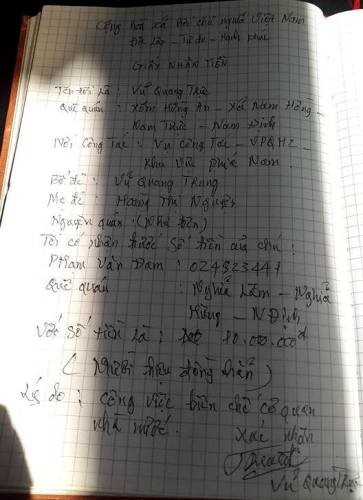 Cộng hoà xã hội chủ nghĩa Việt Nam
Độc lập - Tự do - Hạnh phúc
GIẤY NHẬN TIỀN
Tên tôi là : Vũ Quang Trúc
Quê quán : Xóm Hồng An - Xã Nam Hồng -
Nam Trực - Nam Định
Nơi Công Tác : Vụ Công Tác - VPQH
Khu vực phía Nam.
Bố đẻ : Vũ Quang Trung
Mẹ đẻ : Hoàng Thị Nguyệt
Nguyên quán : (Như trên)
Tôi có nhận được số tiền của chú :
Phạm Văn Đam : 024923441
Quê quán : Nghĩa Lâm - Nghĩa
Hưng - NĐịnh
Với số tiền là : 10.000.000đ
( Mười triệu đồng chẵn )
Lý do : Công việc biên chế cơ quan
nhà nước.
Xác nhận
Vũ Quang Trúc